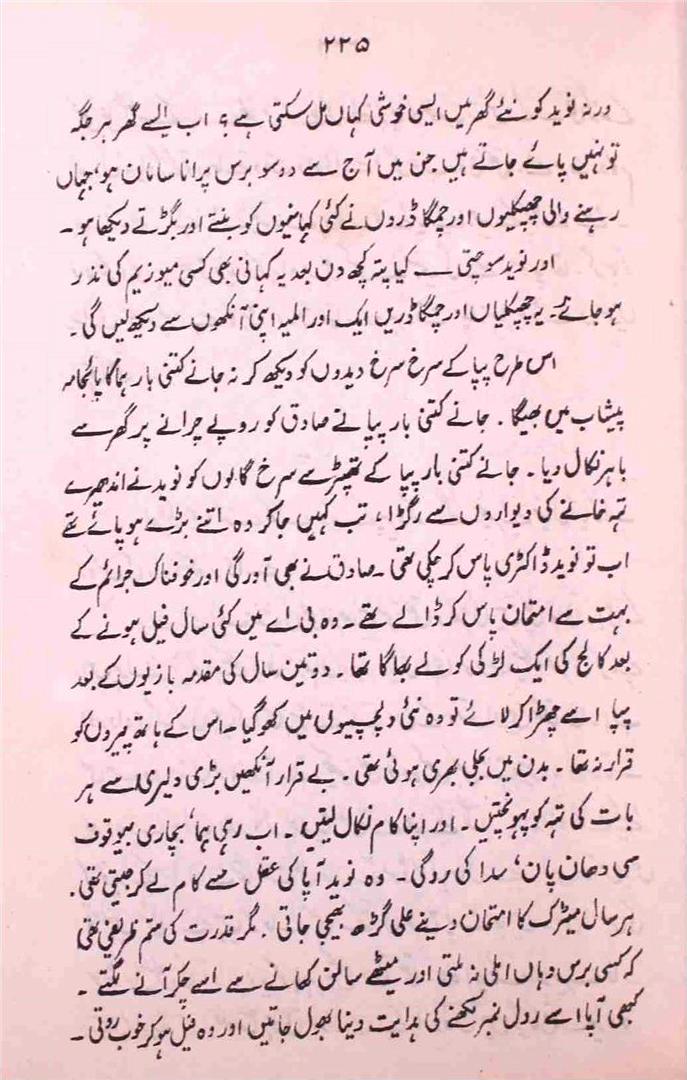 ۲۲۵
ورنہ نوید کو نئے گھر میں ایسی خوشی کہاں مل سکتی ہے ؟ اب ایسے گھر ہر جگہ
تو نہیں پائے جاتے ہیں جن میں آج سے دو سو برس پرانا سامان ہو، جہاں
رہنے والی چھپکلیوں اور چمگادڑوں نے کئی کہانیوں کو بنتے اور بگڑتے دیکھا ہو ۔
اور نوید سوچتی — کیا پتہ کچھ دن بعد یہ کہانی بھی کسی میوزیم کی نذر
ہو جائے۔ یہ چھپکلیاں اور چمگادڑیں ایک اور المیہ اپنی آنکھوں سے دیکھ لیں گی ۔
اس طرح پپا کے سرخ سرخ دیدوں کو دیکھ کر نہ جانے کتنی بار ہما کا پائجامہ
پیشاب میں بھیگا ۔ جانے کتنی بار پپا نے صادق کو روپے چرانے پر گھر سے
باہر نکال دیا ۔ جانے کتنی بار پپا کے تھپڑ سے سرخ گالوں کو نوید نے اندھیرے
تہہ خانے کی دیواروں سے رگڑا ، تب کہیں جا کر وہ اتنے بڑے ہو پائے تھے
اب تو نوید ڈاکٹری پاس کر چکی تھی ۔ صادق نے بھی آورگی اور خوفناک جرائم کے
بہت سے امتحان پاس کر ڈالے تھے ۔ وہ بی اے میں کئی سال فیل ہونے کے
بعد کالج کی ایک لڑکی کو لے بھاگا تھا ۔ دو تین سال کی مقدمہ بازیوں کے بعد
پپا اسے چھڑا کر لائے تو وہ نئی دلچسپیوں میں کھو گیا ۔ اس کے ہاتھ پیروں کو
قرار نہ تھا ۔ بدن میں بجلی بھری ہوئی تھی ۔ بے قرار آنکھیں بڑی دلیری سے ہر
بات کی تہہ کو پہونچتیں ۔ اور اپنا کام نکال لیتیں ۔ اب رہی ہما، بچاری بیوقوف
سی دھان پان، سدا کی روگی ۔ وہ نوید آپا کی عقل سے کام لے کر جیتی تھی ۔
ہر سال میٹرک کا امتحان دینے علی گڑھ بھیجی جاتی ۔ مگر قدرت کی ستم ظریفی تھی
کہ کسی برس وہاں املی نہ ملتی اور میٹھے سالن کھانے سے اسے چکر آنے لگتے ۔
کبھی آپا اسے رول نمبر لکھنے کی ہدایت دینا بھول جاتیں اور وہ فیل ہو کر خوب روتی ۔